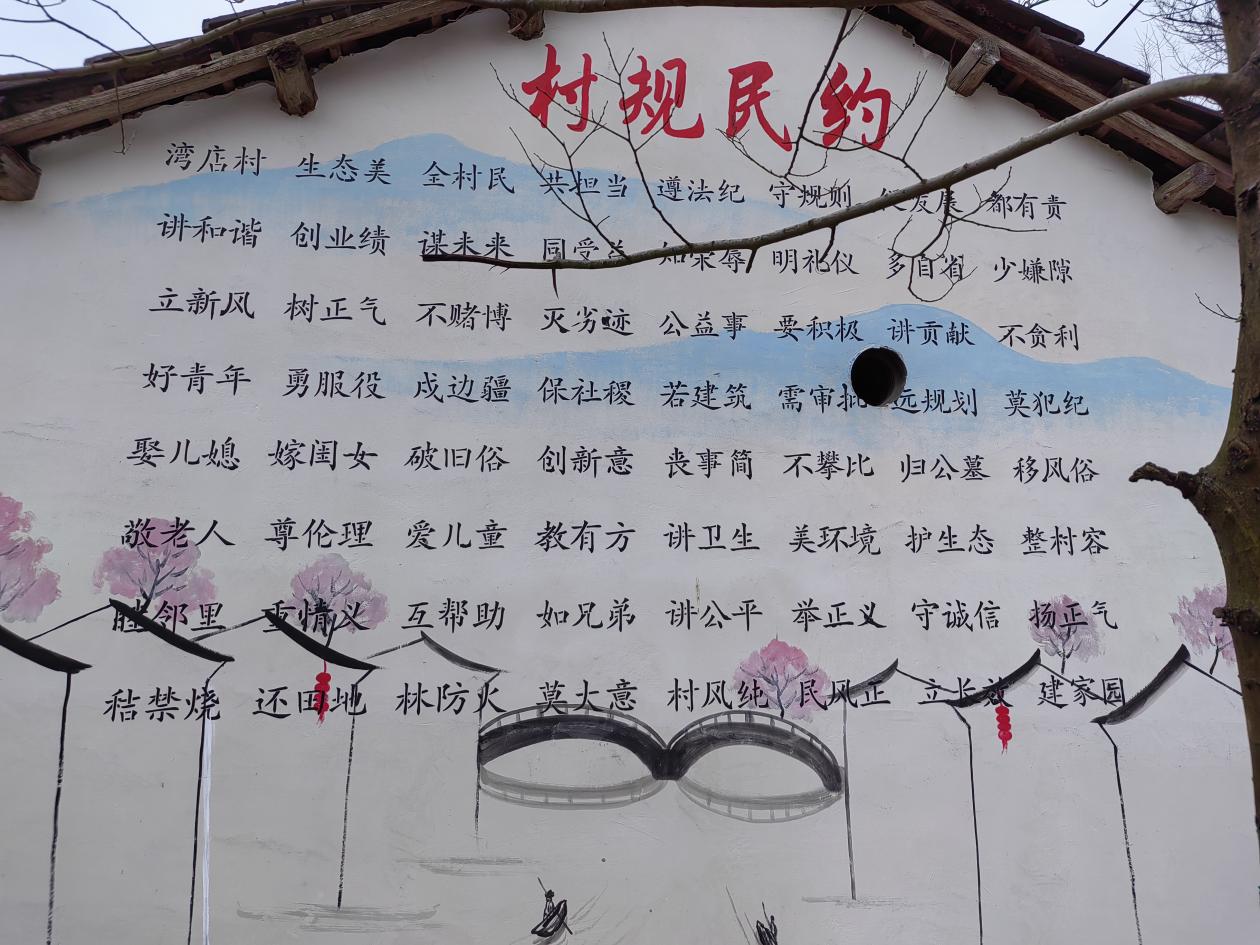 村规民约
湾店村 生态美 全村民 共担当 遵法纪 守规则 促发展 都有责
讲和谐 创业绩 谋未来 同受益 知荣辱 明礼仪 多自省 少嫌隙
立新风 树正气 不赌博 灭劣迹 公益事 要积极 讲贡献 不贪利
好青年 勇服役 戍边疆 保社稷 若建筑 需审批 远规划 莫犯纪
娶儿媳 嫁闺女 破旧俗 创新意 丧事简 不攀比 归公墓 移风俗
敬老人 尊伦理 爱儿童 教有方 讲卫生 美环境 护生态 整村容
睦邻里 重情义 互帮助 如兄弟 讲公平 举正义 守诚信 扬正气
秸禁烧 还田地 林防火 莫大意 村风纯 民风正 立长效 建家园